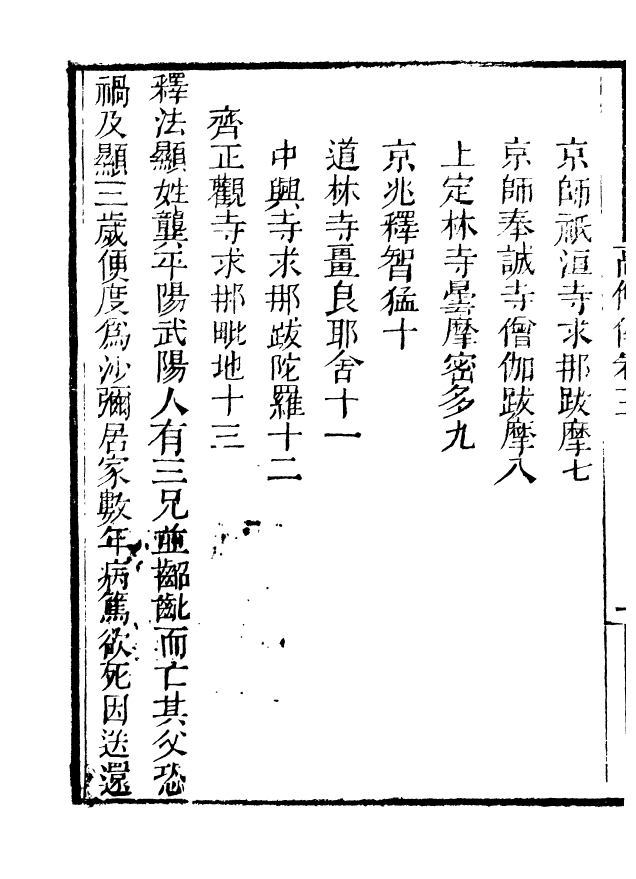 高僧傳卷三
京師祇洹寺求那跋摩七
京師奉誠寺僧伽跋摩八
上定林寺曇摩密多九
京兆釋智猛十
道林寺畺良耶舍十一
中興寺求那跋陀羅十二
齊正觀寺求那毗地十三
釋法顯姓龔平陽武陽人有三兄並齠齔而亡其父恐
禍及顯三歲便度爲沙彌居家數年病篤欲死因送還